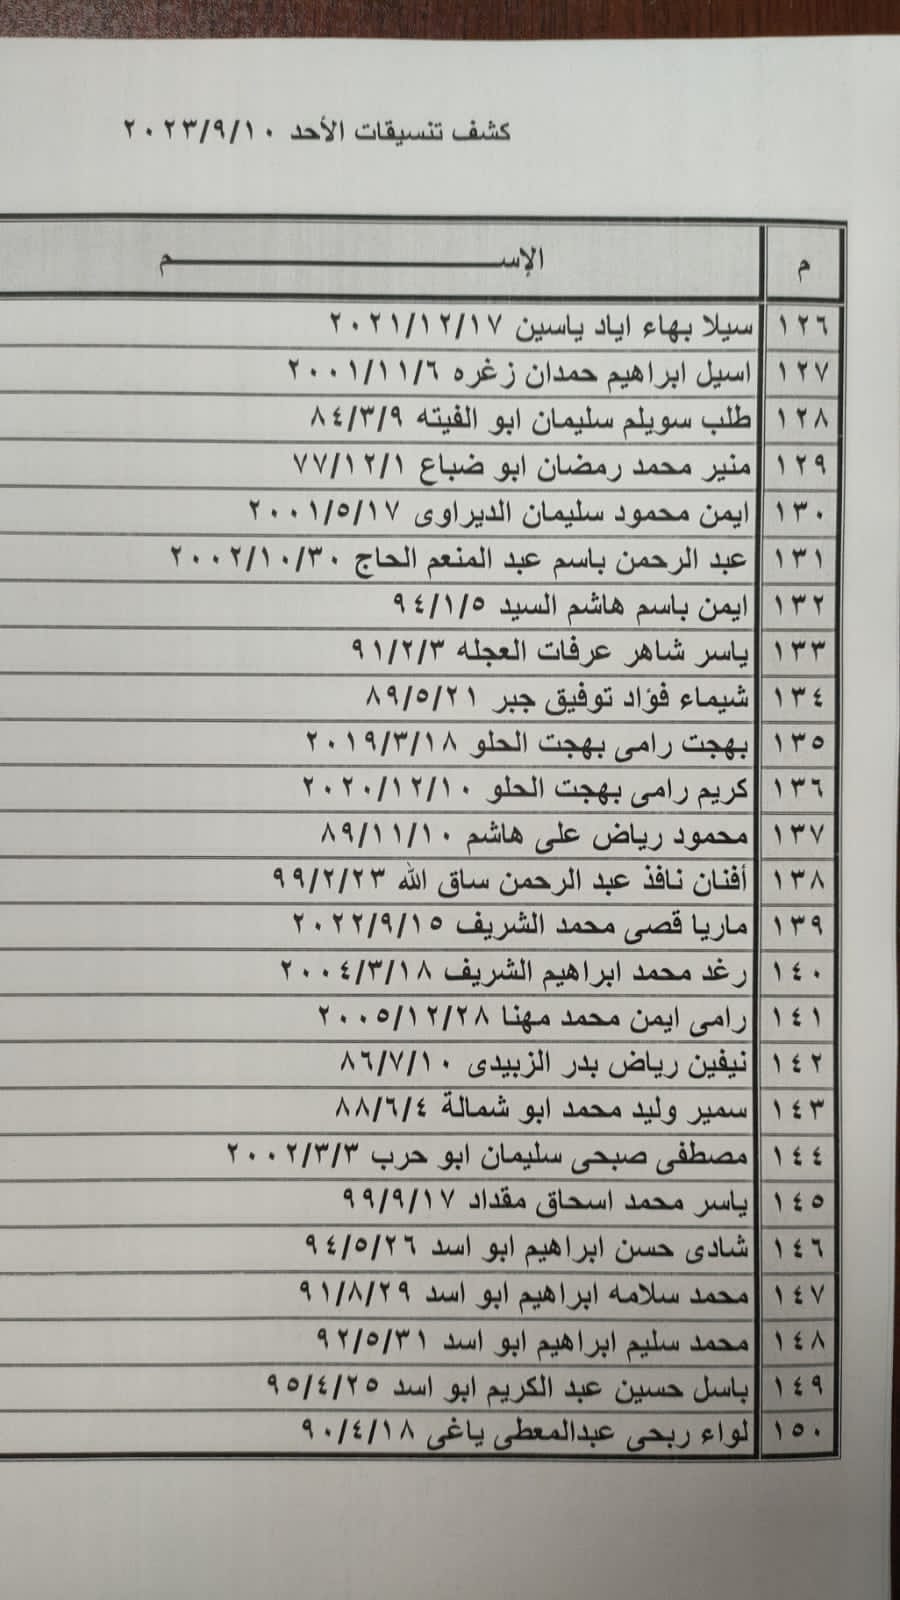 كشف تنسيقات الأحد ٢٠٢٣/٩/١٠
م الإســــــــــــــــم
١٢٦ سيلا بهاء اياد ياسين ٢٠٢١/١٢/١٧
١٢٧ اسيل ابراهيم حمدان زغره ٢٠٠١/١١/٦
١٢٨ طلب سويلم سليمان ابو الفيته ٨٤/٣/٩
١٢٩ منير محمد رمضان ابو ضباع ٧٧/١٢/١
١٣٠ ايمن محمود سليمان الديراوى ٢٠٠١/٥/١٧
١٣١ عبد الرحمن باسم عبد المنعم الحاج ٢٠٠٢/١٠/٣٠
١٣٢ ايمن باسم هاشم السيد ٩٤/١/٥
١٣٣ ياسر شاهر عرفات العجله ٩١/٢/٣
١٣٤ شيماء فؤاد توفيق جبر ٨٩/٥/٢١
١٣٥ بهجت رامى بهجت الحلو ٢٠١٩/٣/١٨
١٣٦ كريم رامى بهجت الحلو ٢٠٢٠/١٢/١٠
١٣٧ محمود رياض على هاشم ٨٩/١١/١٠
١٣٨ أفنان نافذ عبد الرحمن ساق الله ٩٩/٢/٢٣
١٣٩ ماريا قصى محمد الشريف ٢٠٢٢/٩/١٥
١٤٠ رغد محمد ابراهيم الشريف ٢٠٠٤/٣/١٨
١٤١ رامى ايمن محمد مهنا ٢٠٠٥/١٢/٢٨
١٤٢ نيفين رياض بدر الزبيدى ٨٦/٧/١٠
١٤٣ سمير وليد محمد ابو شمالة ٨٨/٦/٤
١٤٤ مصطفى صبحى سليمان ابو حرب ٢٠٠٢/٣/٣
١٤٥ ياسر محمد اسحاق مقداد ٩٩/٩/١٧
١٤٦ شادى حسن ابراهيم ابو اسد ٩٤/٥/٢٦
١٤٧ محمد سلامه ابراهيم ابو اسد ٩١/٨/٢٩
١٤٨ محمد سليم ابراهيم ابو اسد ٩٢/٥/٣١
١٤٩ باسل حسين عبد الكريم ابو اسد ٩٥/٤/٢٥
١٥٠ لواء ربحى عبدالمعطى ياغى ٩٠/٤/١٨